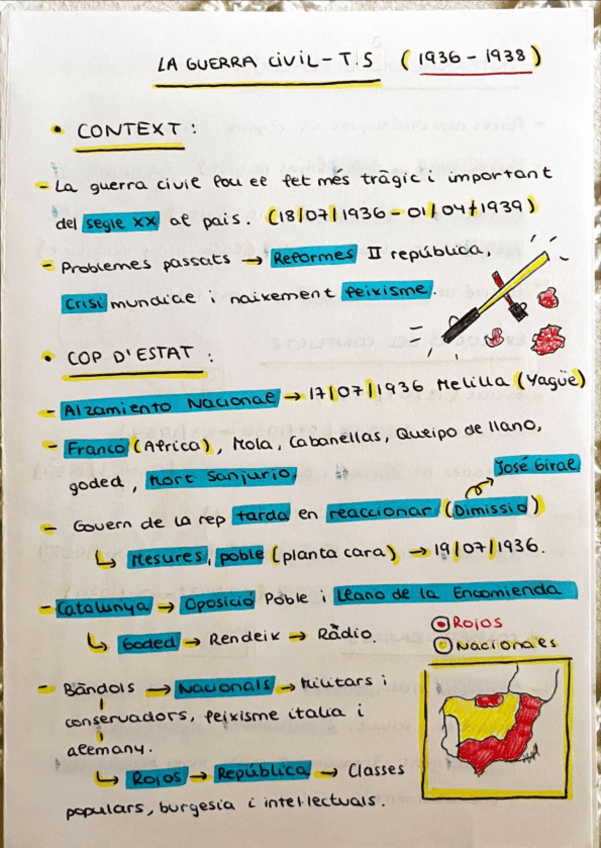 LA GUERRA CIVIL - T.S (1936 - 1938)
• CONTEXT:
- La guerra civil fou el fet més tràgic i important
del segle XX al pais. (18/07/1936 - 01/04/1939)
- Problemes passats → Reformes II república,
Crisi mundial i naixement feixisme.
• COP D'ESTAT:
- Alzamiento Nacional → 17/07/1936 Melilla (Yagüe)
- Franco (Africa), Mola, Cabanellas, Queipo de llano,
goded, Mort Sanjurjo,
José Giral
- Govern de la rep tarda en reaccionar (Dimissió)
↳ Mesures i poble (planta cara) → 19/07/1936.
- Catalunya → Oposició Poble i Llano de la Encomienda
↳ Goded → Rendeix → Ràdio.
Rojos
Nacionales
- Bàndols → Nacionals → Militars i
conservadors, feixisme italia i
alemany.
↳ Rojos → República → Classes
populars, burgesia i intel·lectuals.